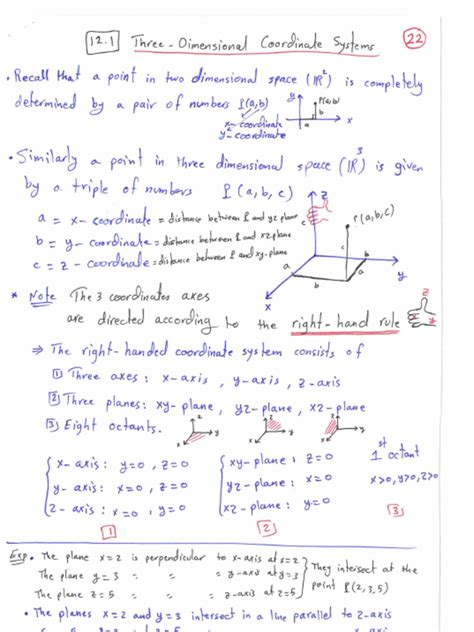 12.1 Three-Dimensional Coordinate Systems 22
• Recall that a point in two dimensional space (ℝ²) is completely
determined by a pair of numbers P(a,b)
x-coordinate
y-coordinate
y
P(a,b)
b
a
x
• Similarly a point in three dimensional space (ℝ³) is given
by a triple of numbers P(a,b,c)
a = x-coordinate = distance between P and yz plane
b = y-coordinate = distance between P and xz plane
c = z-coordinate = distance between P and xy-plane
z
c
P(a,b,c)
c
a
b
b
a
y
x
* Note The 3 coordinates axes
are directed according to the right-hand rule
z
⇒ The right-handed coordinate system consists of
1 Three axes: x-axis, y-axis, z-axis
2 Three planes: xy-plane, yz-plane, xz-plane
3 Eight octants.
z y x
z y x
z y x
x-axis: y=0, z=0
y-axis: x=0, z=0
z-axis: x=0, y=0
1
xy-plane: z=0
yz-plane: x=0
xz-plane: y=0
2
1st octant
x>0, y>0, z>0
3
Exp. • The plane x=2 is perpendicular to x-axis at x=2
The plane y=3 " " " y-axis at y=3
The plane z=5 " " " z-axis at z=5
They intersect at the
point P(2,3,5)
• The planes x=2 and y=3 intersect in a line parallel to z-axis